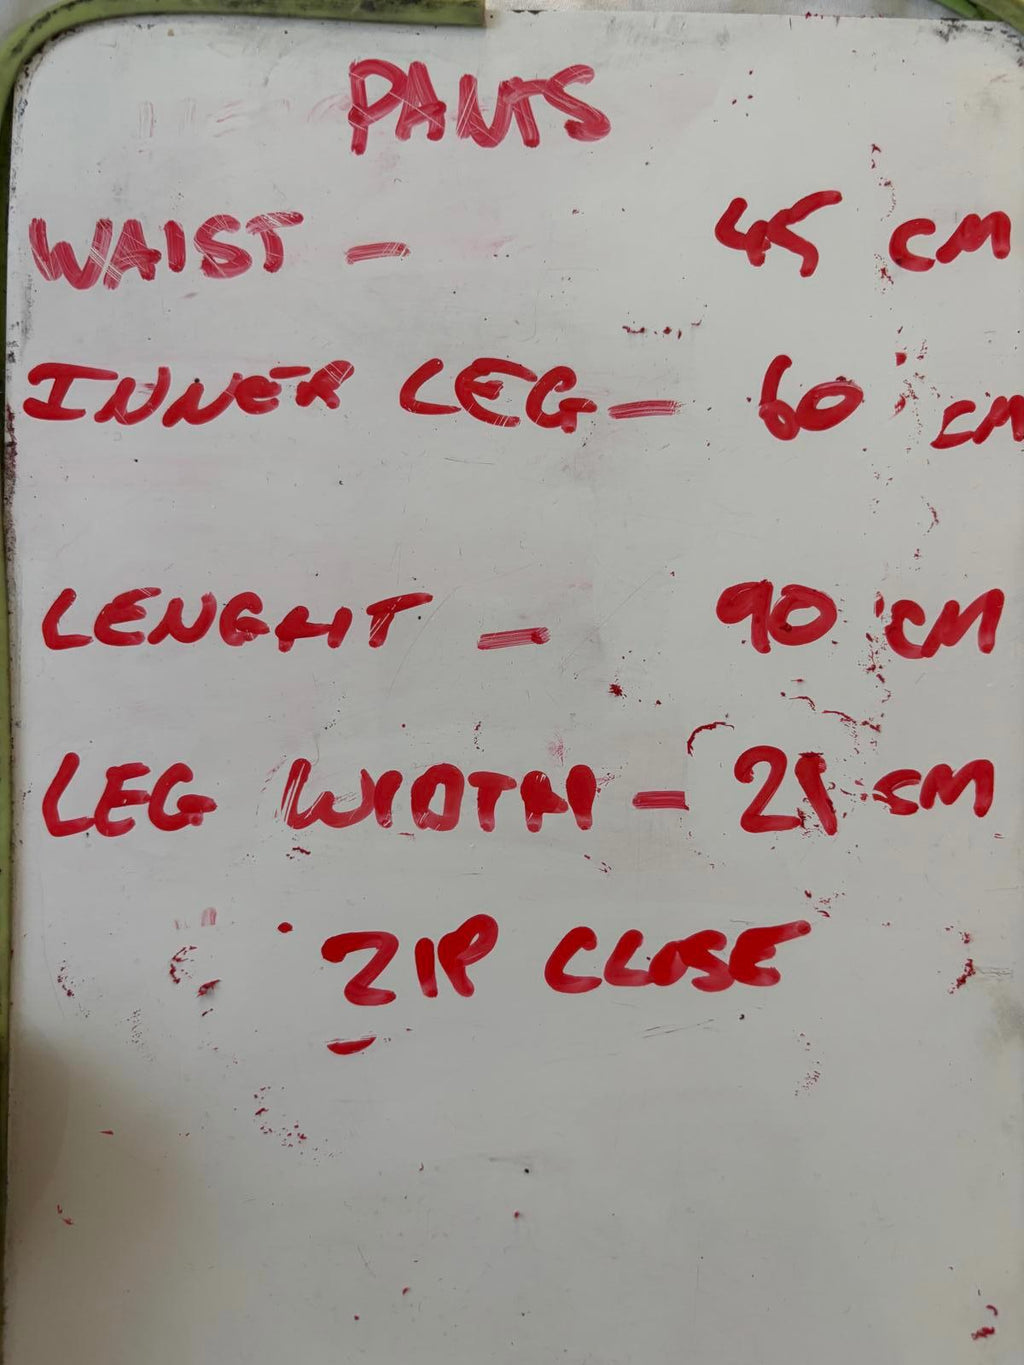 PANTS
WAIST - 45 CM
INNER LEG - 60 CM
LENGHT - 90 CM
LEG WIDTH - 21 CM
ZIP CLOSE